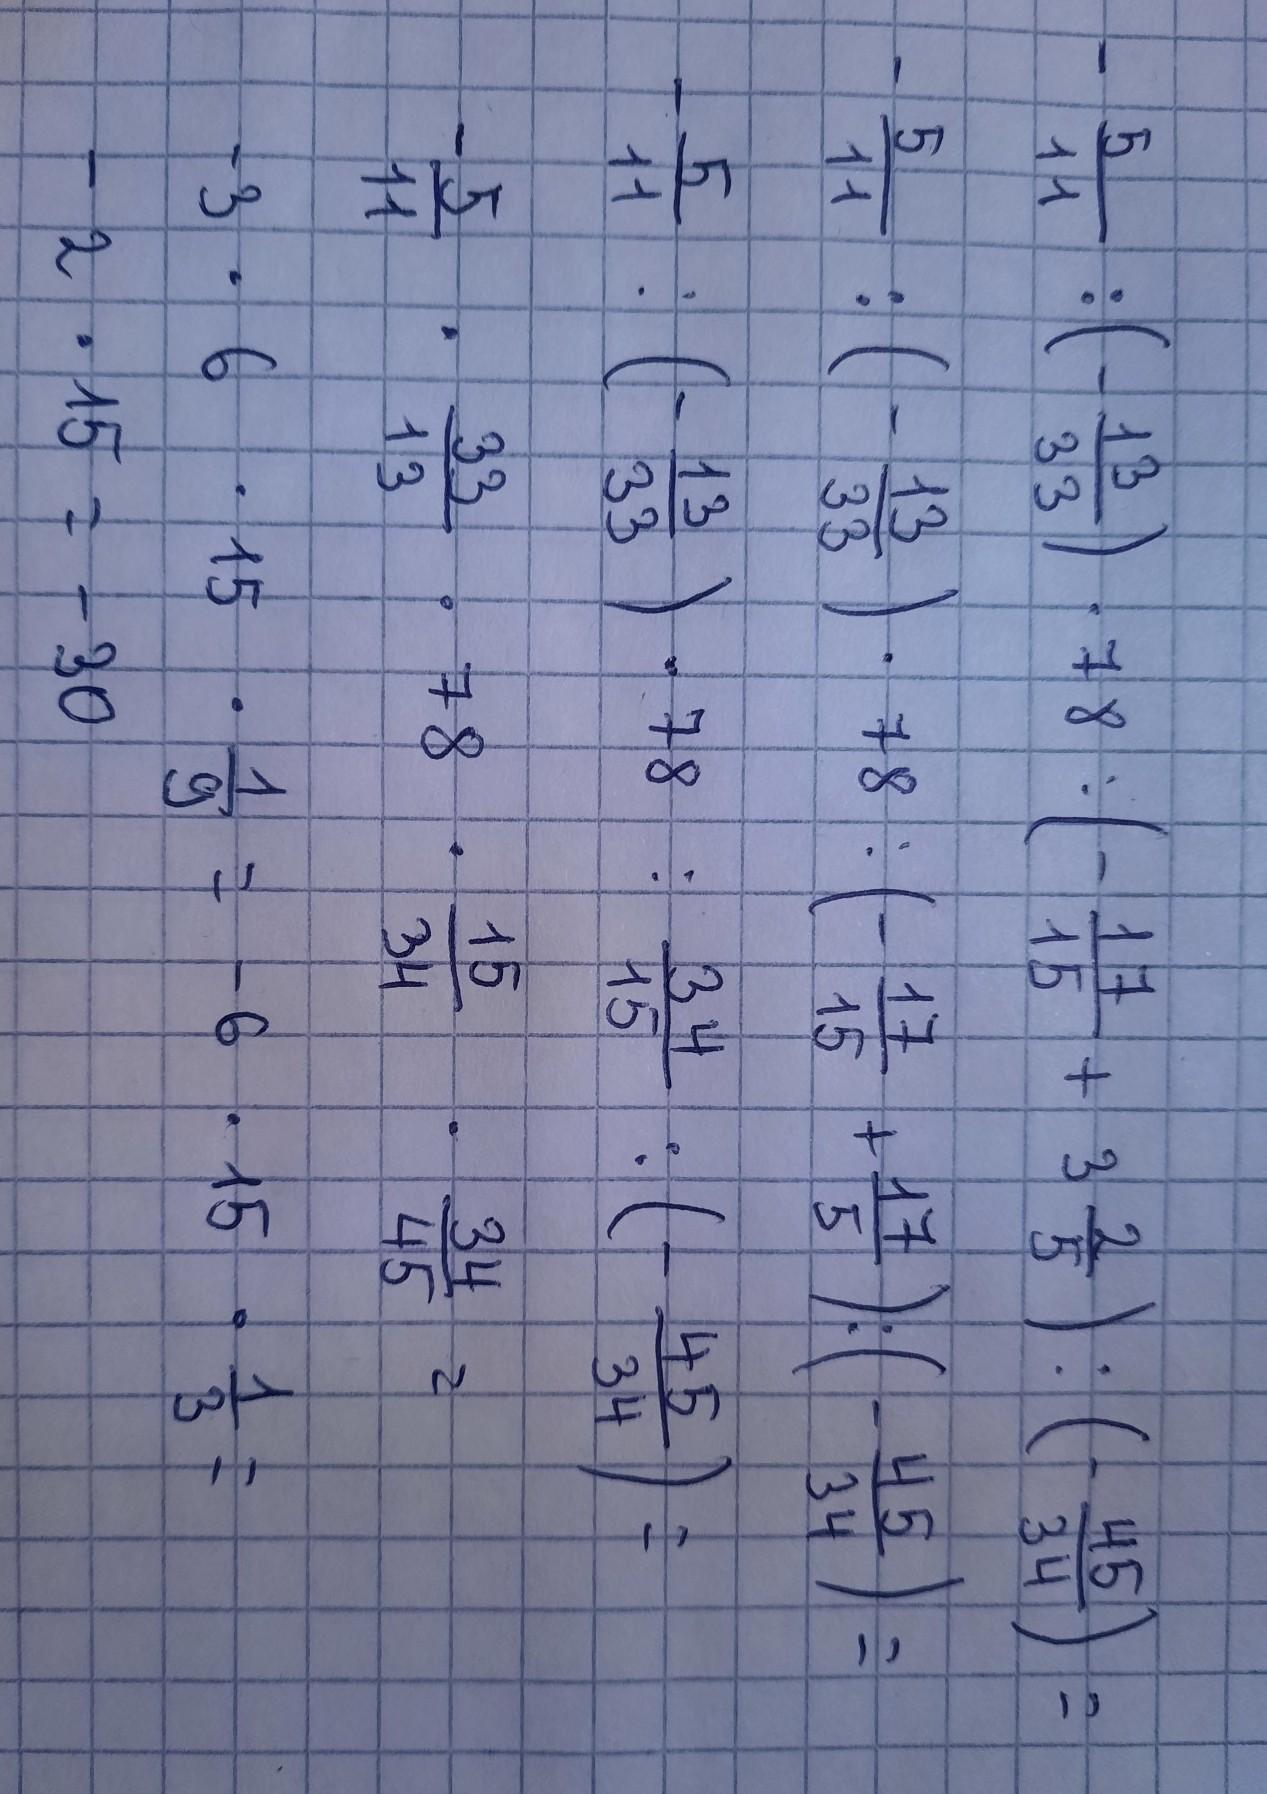 - 5/11 : (- 13/33) · 78 : (- 17/15 + 3 2/5) : (- 45/34) =
- 5/11 : (- 13/33) · 78 : (- 17/15 + 17/5) : (- 45/34) =
- 5/11 : (- 13/33) · 78 : 34/15 : (- 45/34) =
- 5/11 · 33/13 · 78 · 15/34 · 34/45 =
-3 · 6 · 15 · 1/9 = -6 · 15 · 1/3 =
- 2 · 15 = - 30